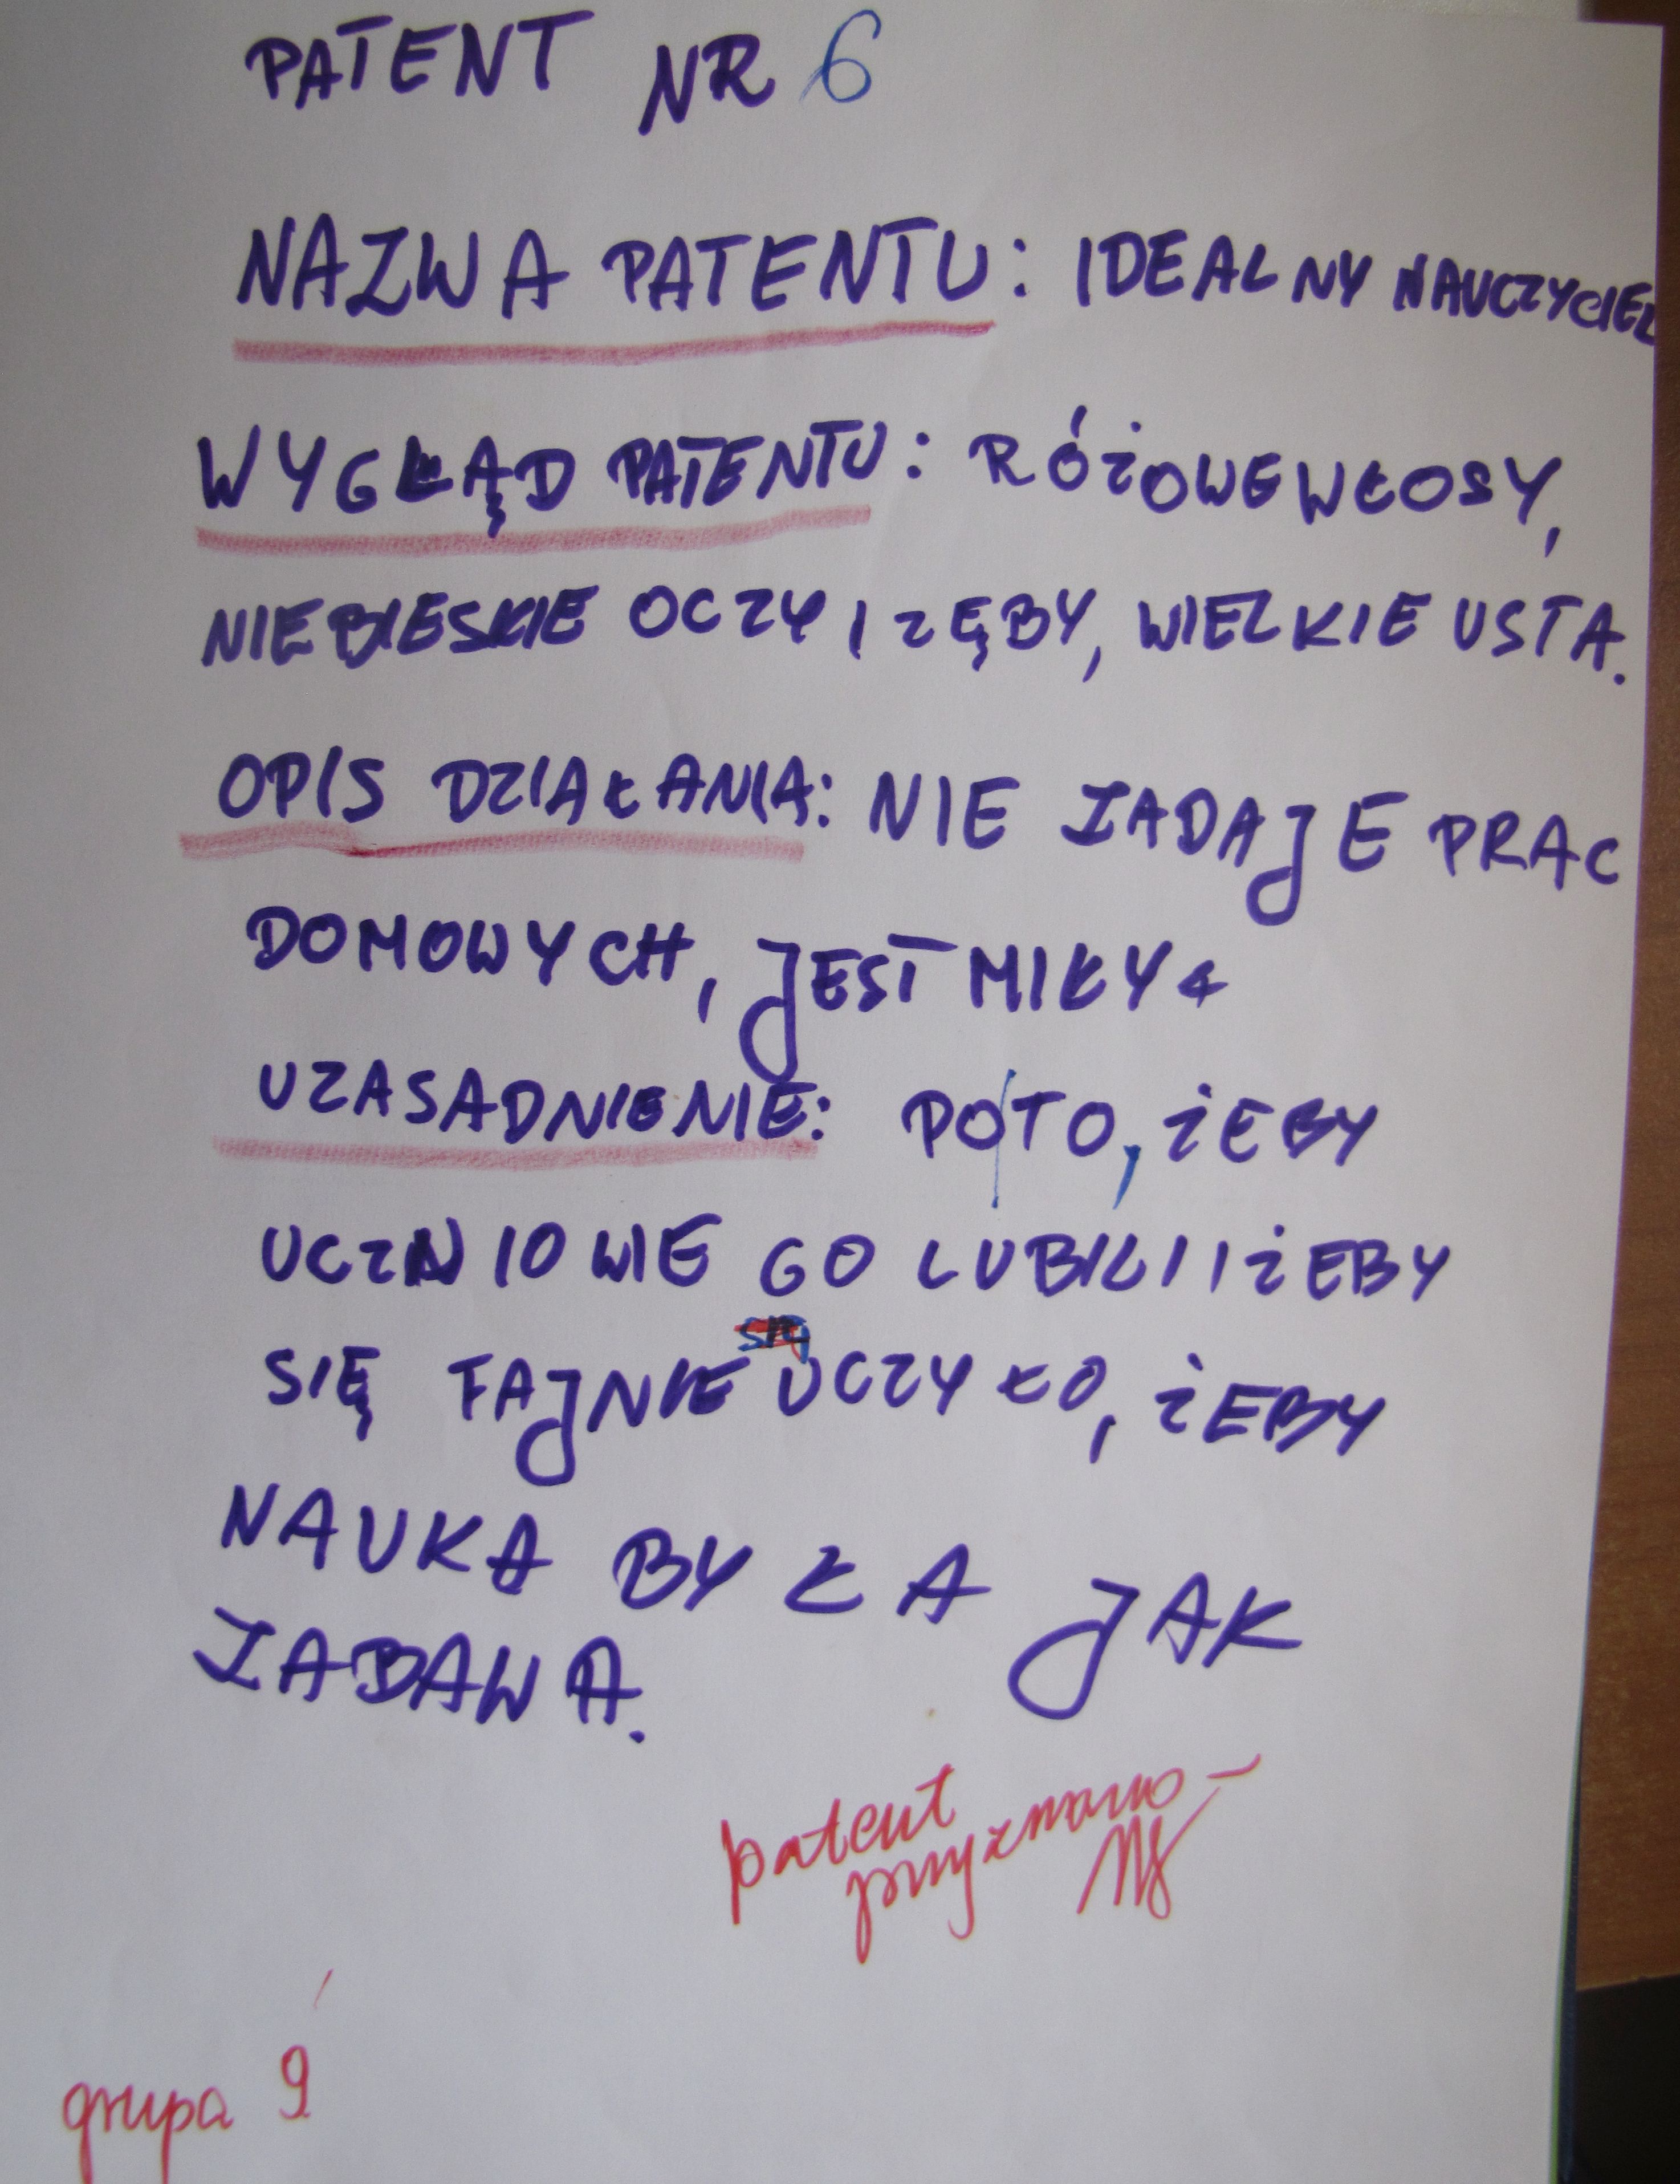 PATENT NR 6
NAZWA PATENTU: IDEALNY NAUCZYCIEL
WYGLĄD PATENTU: RÓŻOWE WŁOSY,
NIEBIESKIE OCZY I ZĘBY, WIELKIE USTA.
OPIS DZIAŁANIA: NIE ZADAJE PRAC
DOMOWYCH, JEST MIŁY
UZASADNIENIE: PO TO, ŻEBY
UCZNIOWIE GO LUBILI I ŻEBY
SIĘ FAJNIE UCZYŁO, ŻEBY
NAUKA BYŁA JAK
ZABAWA.
patent
przyznano -
grupa 9